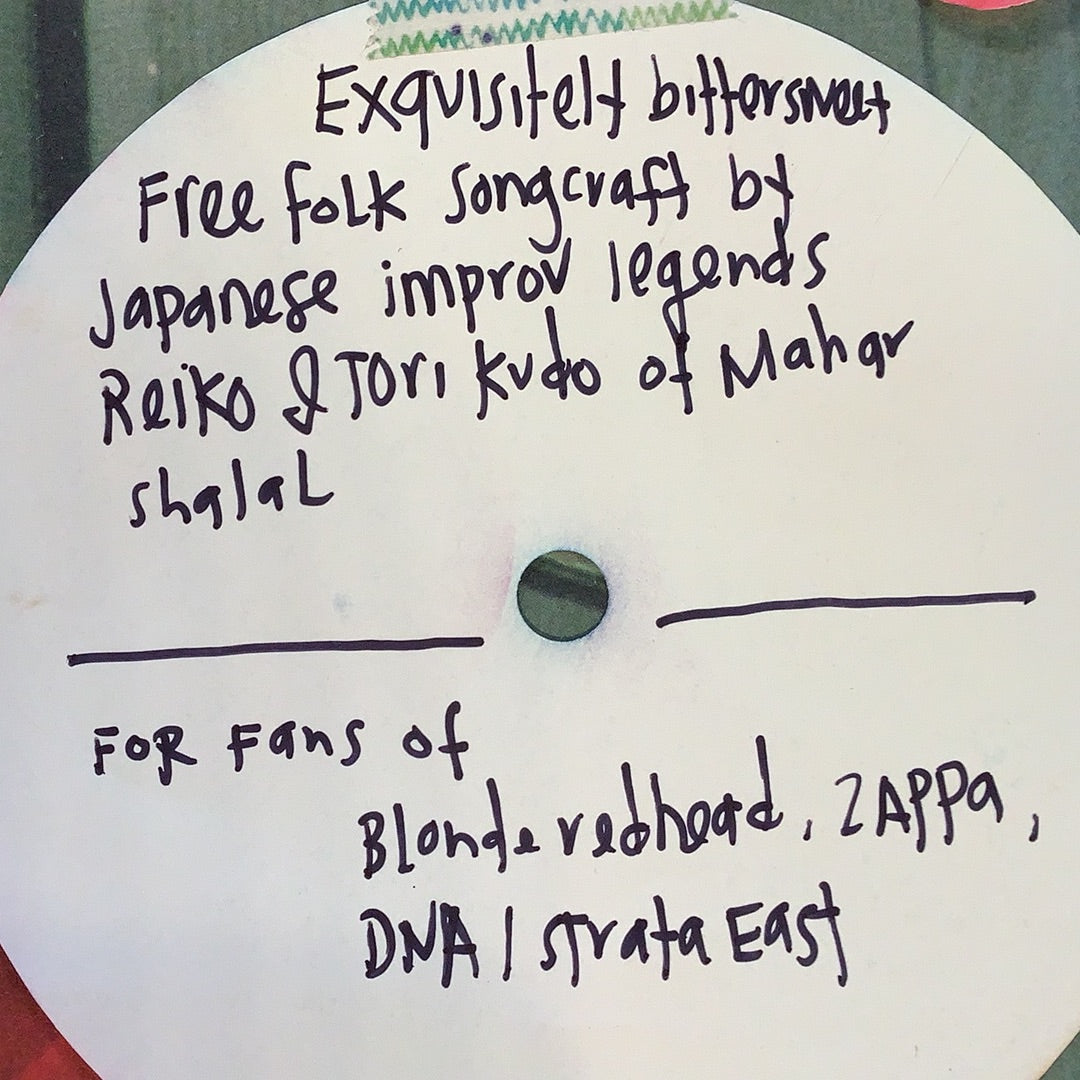 Exquisitely bittersweet
Free folk songcraft by
Japanese improv legends
Reiko & TORi Kudo of Mahar
shalaL
FOR Fans of
Blonde redhead, ZAPPa,
DNA / strata East